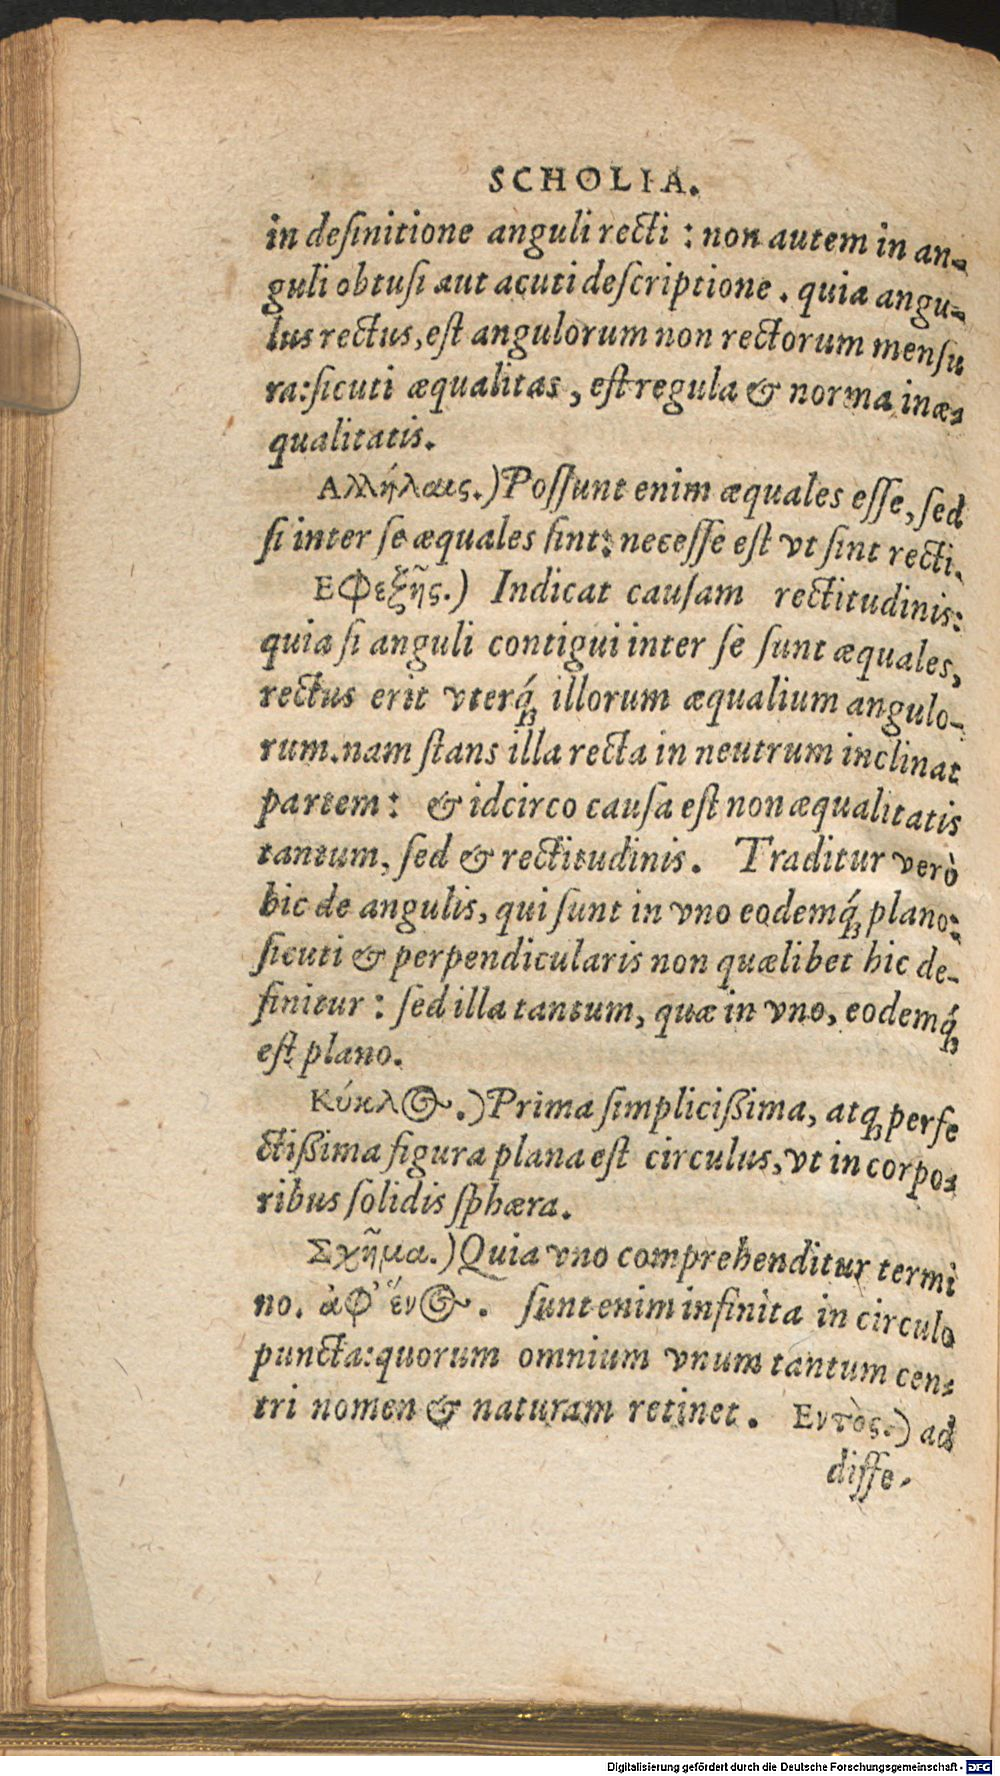 SCHOLIA.
in definitione anguli recti : non autem in an-
guli obtusi aut acuti descriptione. quia angu-
lus rectus, est angulorum non rectorum mensu
ra: sicuti æqualitas, est regula & norma inæ-
qualitatis.
Αλλήλαις.) Possunt enim æquales esse, sed
si inter se æquales sint: necesse est vt sint recti.
Εφεξῆς.) Indicat causam rectitudinis:
quia si anguli contigui inter se sunt æquales,
rectus erit vterq́ꝫ illorum æqualium angulo-
rum. nam stans illa recta in neutrum inclinat
partem: & idcirco causa est non æqualitatis
tantum, sed & rectitudinis. Traditur verò
hic de angulis, qui sunt in vno eodemq́ꝫ plano:
sicuti & perpendicularis non quælibet hic de-
finitur: sed illa tantum, quæ in vno, eodemq́ꝫ
est plano.
Κύκλος.) Prima simplicißima, atqꝫ perfe
ctißima figura plana est circulus, vt in corpo-
ribus solidis sphæra.
Σχῆμα.) Quia vno comprehenditur termi
no. ἀφ' ἕνος. sunt enim infinita in circulo
puncta: quorum omnium vnum tantum cen-
tri nomen & naturam retinet. Εντὸς.) ad
diffe-
Digitalisierung gefördert durch die Deutsche Forschungsgemeinschaft - DFG